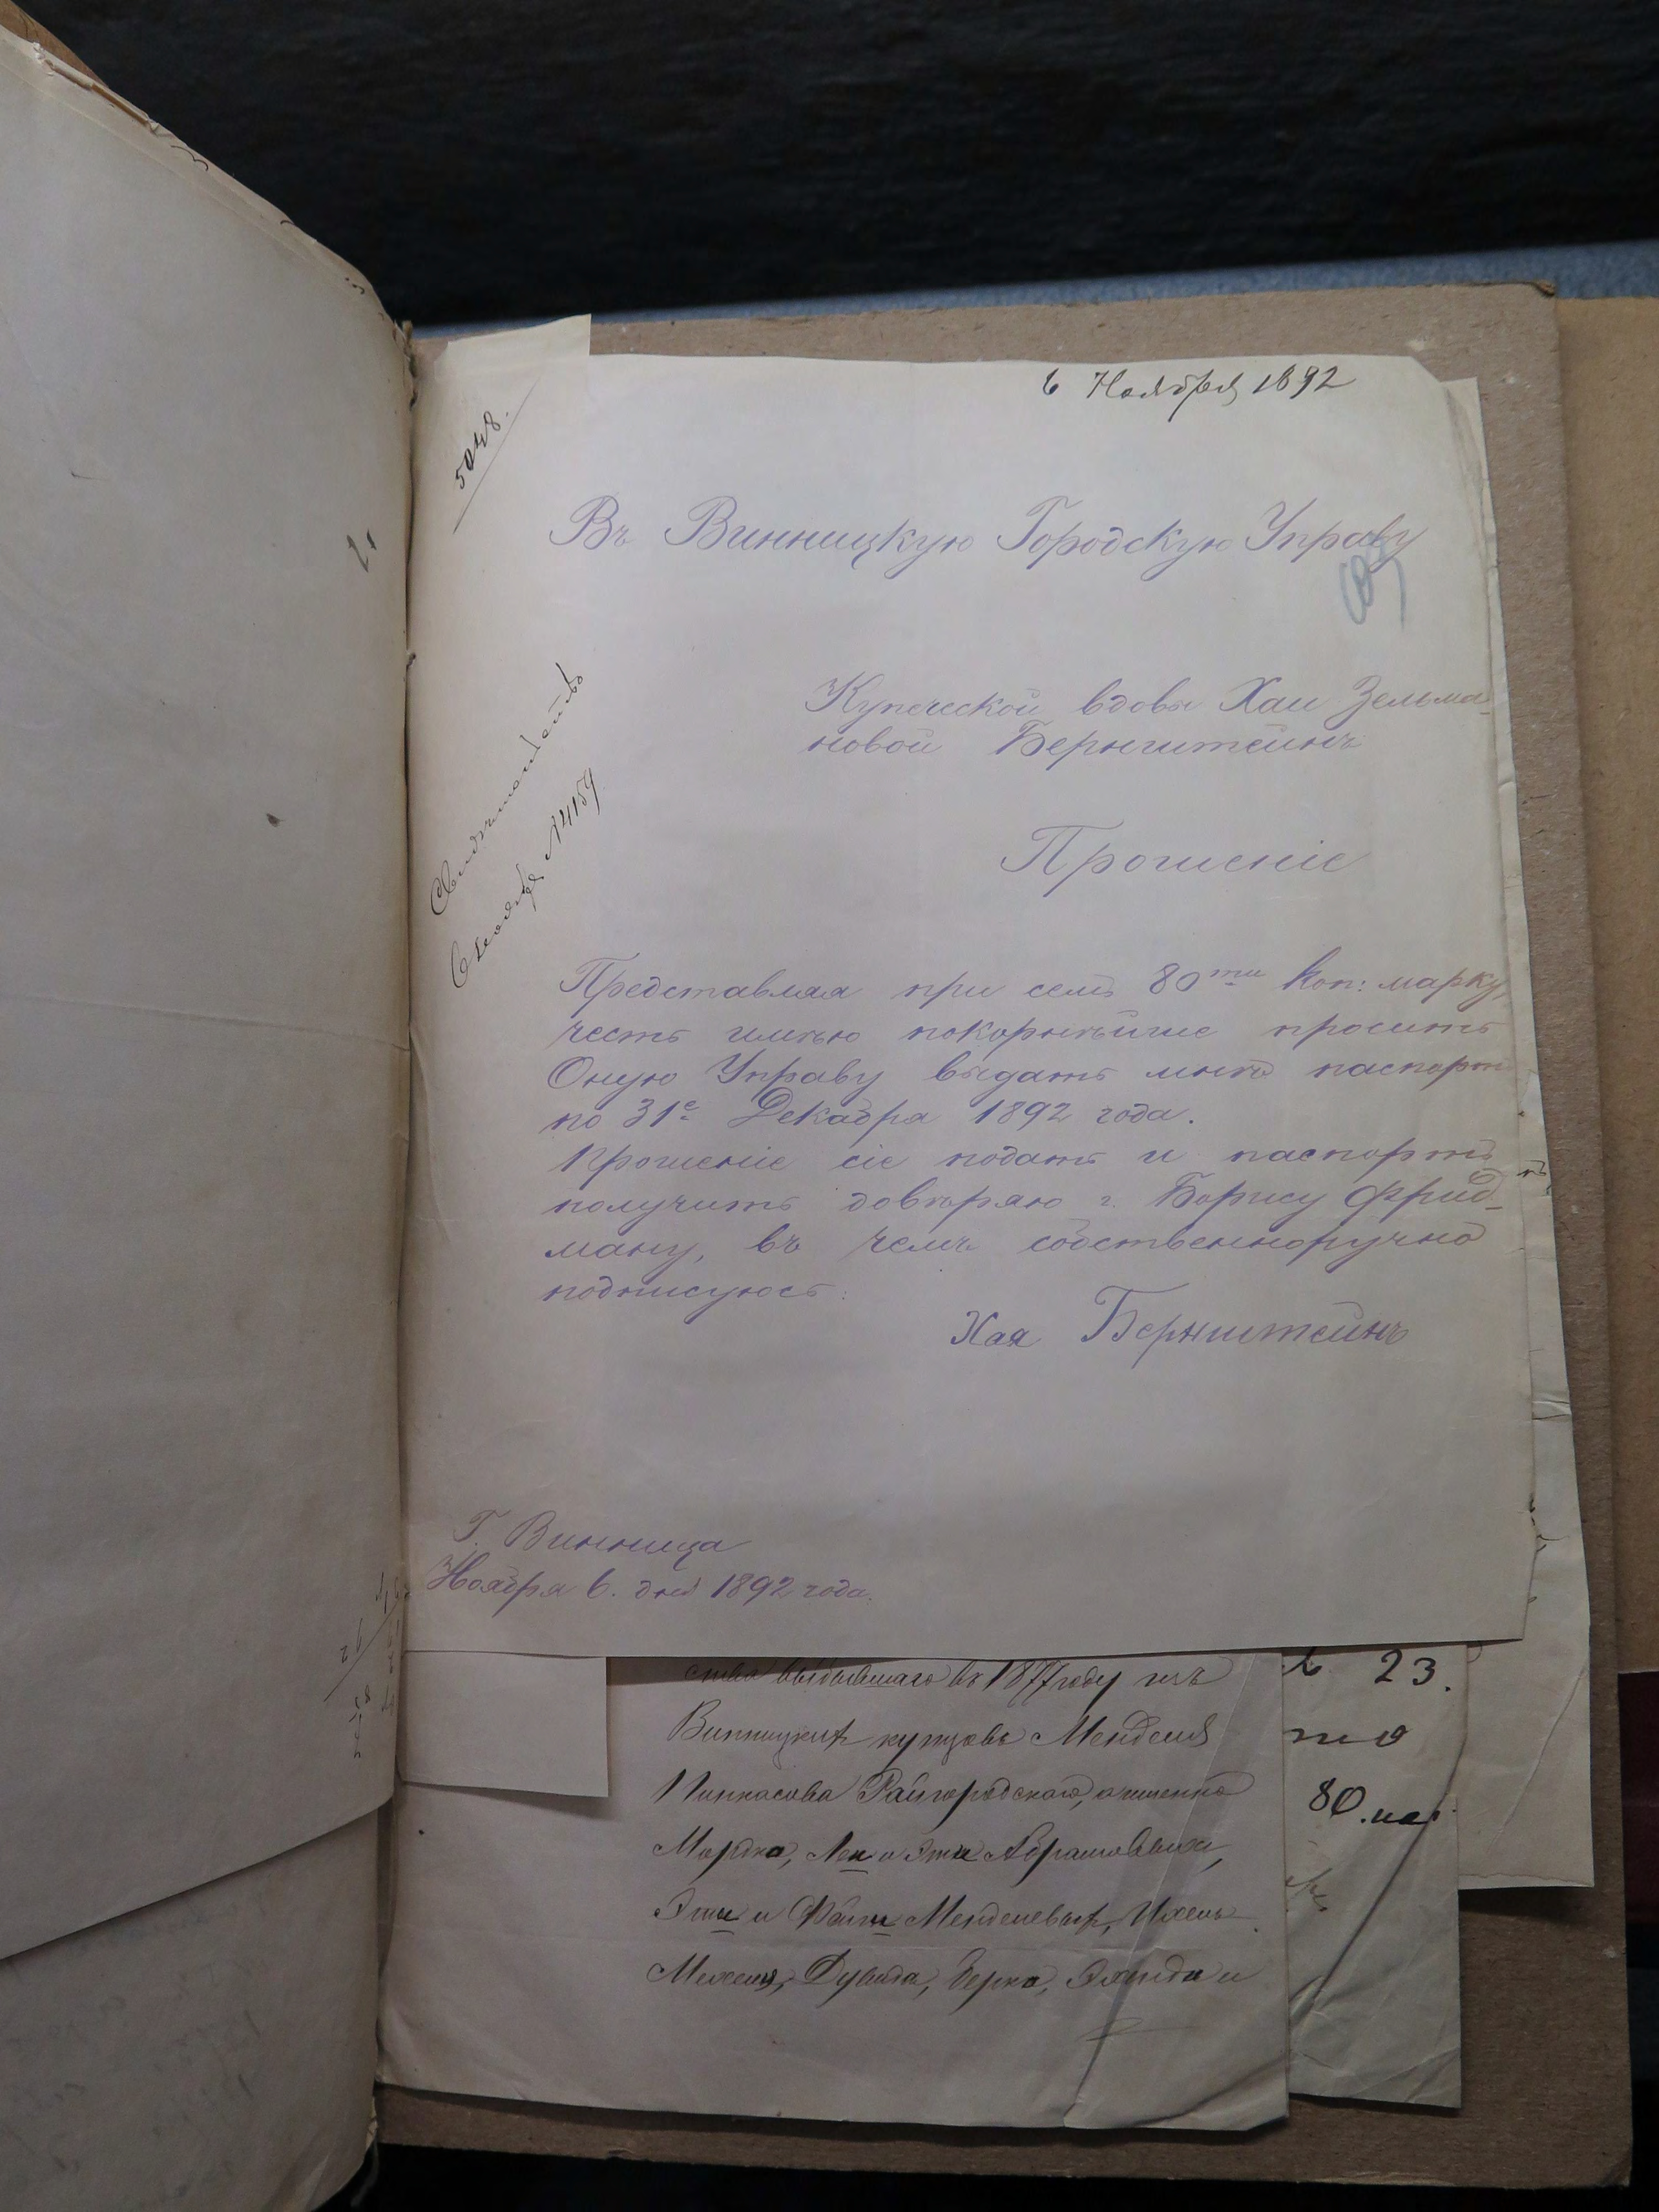 6 Ноября 1892
5048.
Въ Винницкую Городскую Управу
Купеческой вдовы Хаи Зельма-
новой Бернштейнъ
Свидѣтельство
6 Ноября №4159
Прошеніе
Представляя при семъ 80ти коп: марку,
честь имѣю покорнѣйше просить
Оную Управу выдать мнѣ паспортъ
по 31е Декабря 1892 года.
Прошеніе сіе подать и паспортъ
получить довѣряю г. Борису Фрид-
ману, въ чемъ собственноручно
подписуюсь:
Хая Бернштейнъ
Г. Винница
Ноября 6. дня 1892 года.
ства выбывшаго въ 1877 году изъ
Винницкихъ купцовъ Менделя
Пинкасова Райгородскаго, а именно
Мордка, Леи и Эти Абрамовыхъ,
Эти и Фейги Менделевыхъ, Ихель-
Мехеля, Дувида, Берка, и
23.
80.